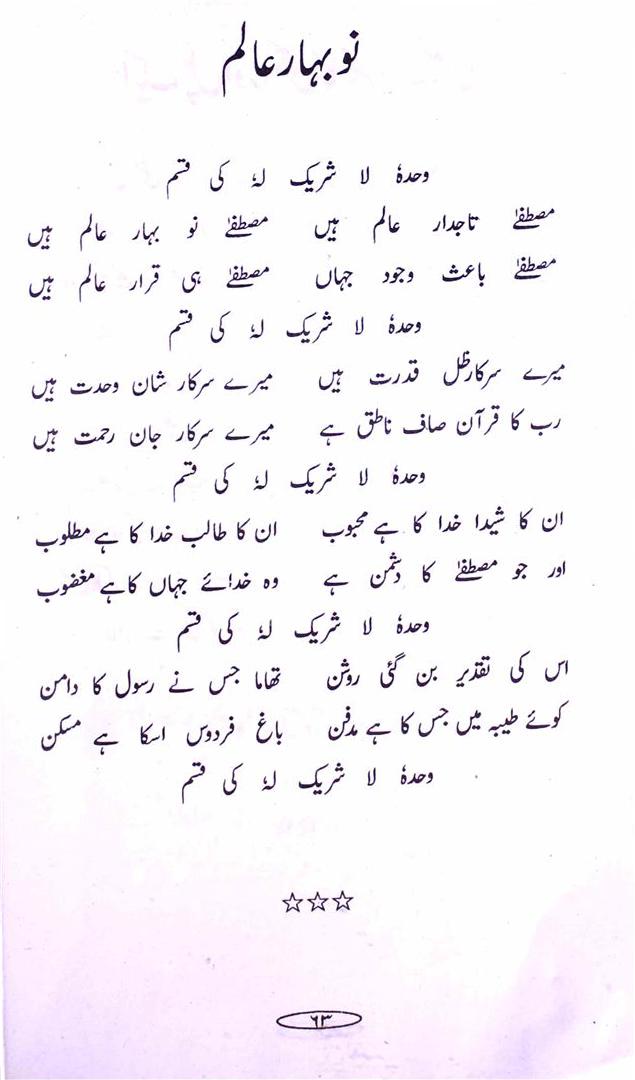 نو بہار عالم
وحدہٗ لا شریک لہٗ کی قسم
مصطفےٰ تاجدار عالم ہیں مصطفےٰ نو بہار عالم ہیں
مصطفےٰ باعث وجود جہاں مصطفےٰ ہی قرار عالم ہیں
وحدہٗ لا شریک لہٗ کی قسم
میرے سرکار ظل قدرت ہیں میرے سرکار شان وحدت ہیں
رب کا قرآن صاف ناطق ہے میرے سرکار جان رحمت ہیں
وحدہٗ لا شریک لہٗ کی قسم
ان کا شیدا خدا کا ہے محبوب ان کا طالب خدا کا ہے مطلوب
اور جو مصطفےٰ کا دشمن ہے وہ خدائے جہاں کا ہے مغضوب
وحدہٗ لا شریک لہٗ کی قسم
اس کی تقدیر بن گئی روشن تھاما جس نے رسول کا دامن
کوئے طیبہ میں جس کا ہے مدفن باغ فردوس اسکا ہے مسکن
وحدہٗ لا شریک لہٗ کی قسم
☆☆☆
۶۳